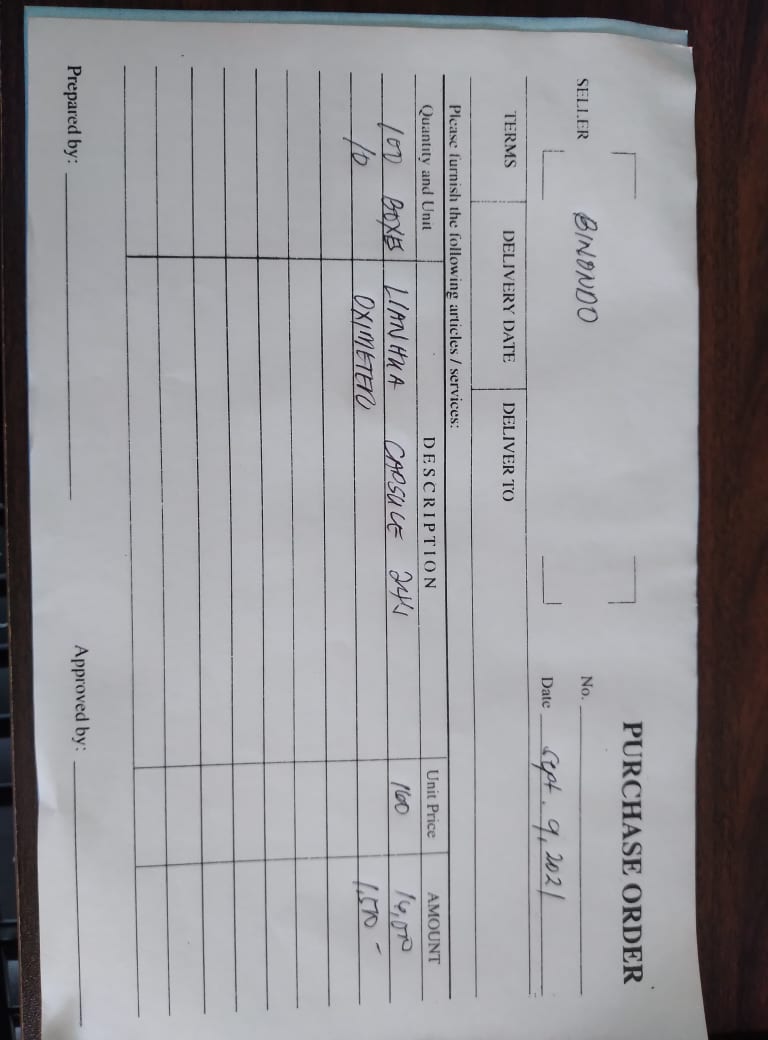 PURCHASE ORDER
SELLER
BINONDO
No.
Date Sept. 9, 2021
TERMS DELIVERY DATE DELIVER TO
Please furnish the following articles / services:
Quantity and Unit DESCRIPTION Unit Price AMOUNT
100 BOXES LIANHUA CAPSULE 24's 160 16,000
10 OXIMETER
Prepared by: Approved by: